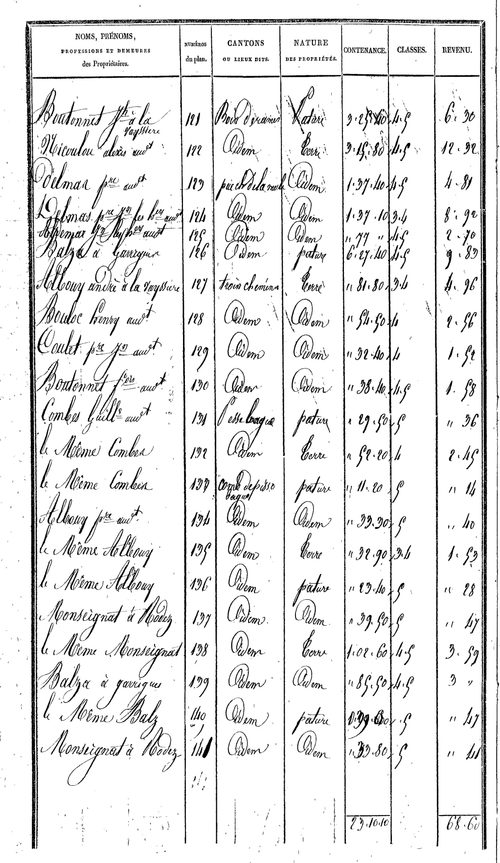 NOMS, PRÉNOMS, PROFESSIONS ET DEMEURES des Propriétaires. NUMÉROS du plan. CANTONS OU LIEUX DITS. NATURE DES PROPRIÉTÉS. CONTENANCE. CLASSES. REVENU.
Boutonnet à la Vayssiere 121 Pature 4.5 6.30
Nicoulou alexis audt 122 Idem Terre 3.15.80 4.5 12.32
Delmas pre audt 123 Idem 1.37.40 4.5 4.81
Delmas pre audt 124 Idem Idem 1.37.10 3.4 8.92
audt 125 Idem Idem " 77 " 4.5 2.70
Balza à Garrigues 126 Idem pature 6.27.40 4.5 9.83
Albouy andré à la Vayssiere 127 trois chemins Terre " 81.80 3.4 4.96
Bouloc henry audt 128 Idem Idem " 54.50 4 2.56
Coulet pre jn audt 129 Idem Idem " 32.40 4 1.52
Boutonnet audt 130 Idem Idem " 38.40 4.5 1.58
Combes Guille audt 131 pature " 29.50 5 " 36
le Même Combes 132 Idem Terre " 52.20 4 2.45
le Même Combes 133 pature " 11.20 5 " 14
Albouy pre audt 134 Idem Idem " 33.30 5 " 40
le Même Albouy 135 Idem Terre " 32.90 3.4 1.53
le Même Albouy 136 Idem pature " 23.40 5 " 28
Monseignat à Rodez 137 Idem Idem " 39.50 5 " 47
le Même Monseignat 138 Idem Terre 1.02.60 4.5 3.59
Balza à garrigues 139 Idem Idem " 85.50 4.5 3 "
le Même Balz 140 Idem pature 5 " 47
Monseignat à Rodez 141 Idem Idem " 33.80 5 " 41
23.10.10 68.60